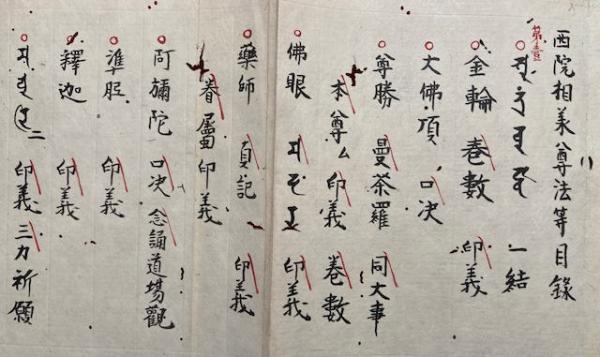 西院相承尊法等目錄
第壹
一結
金輪 巻數 印義
大佛頂 口决
尊勝 曼荼羅 同大事
本尊么 印義 巻數
佛眼 印義
藥師 頁記 印義
眷屬印義
阿彌陀 口决 念誦道場觀
準胝 印義
釋迦 印義
二 印義 三力祈願